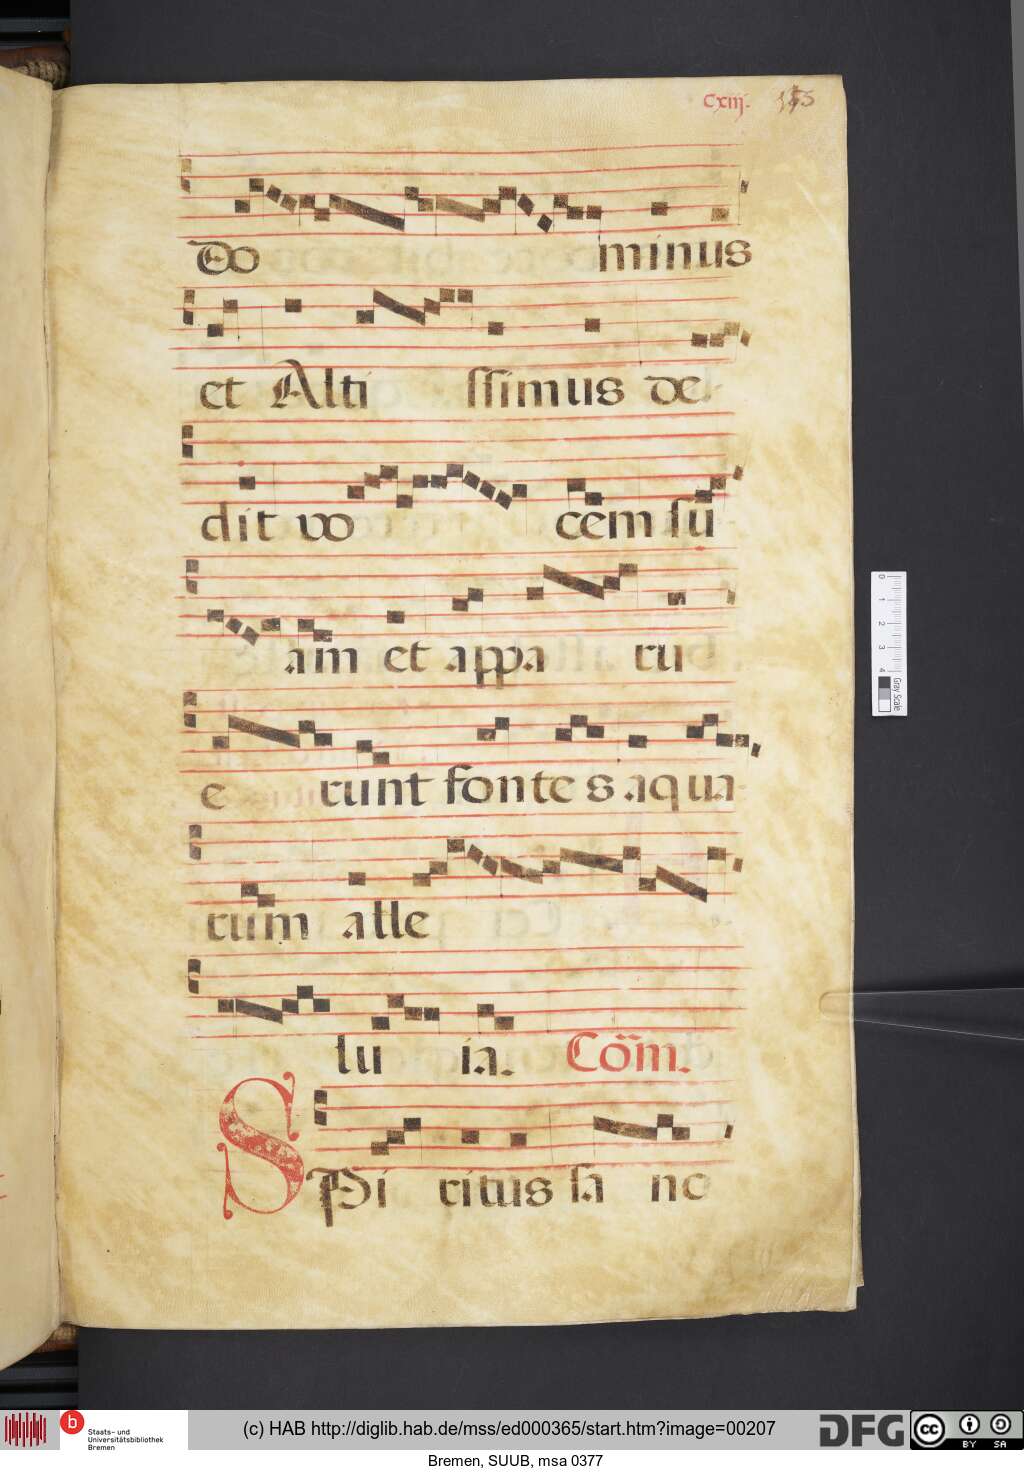 Cxiij. 155
Do minus
et Alti ssimus de
dit vo cem su
am et appa ru
e runt fontes aqua
rum alle
lu ia. Cõm.
SPi ritus sa nc
0 1 2 3 4 Gray Scale
Staats- und
Universitätsbibliothek
Bremen
(c) HAB http://diglib.hab.de/mss/ed000365/start.htm?image=00207
DFG
cc BY SA
Bremen, SUUB, msa 0377